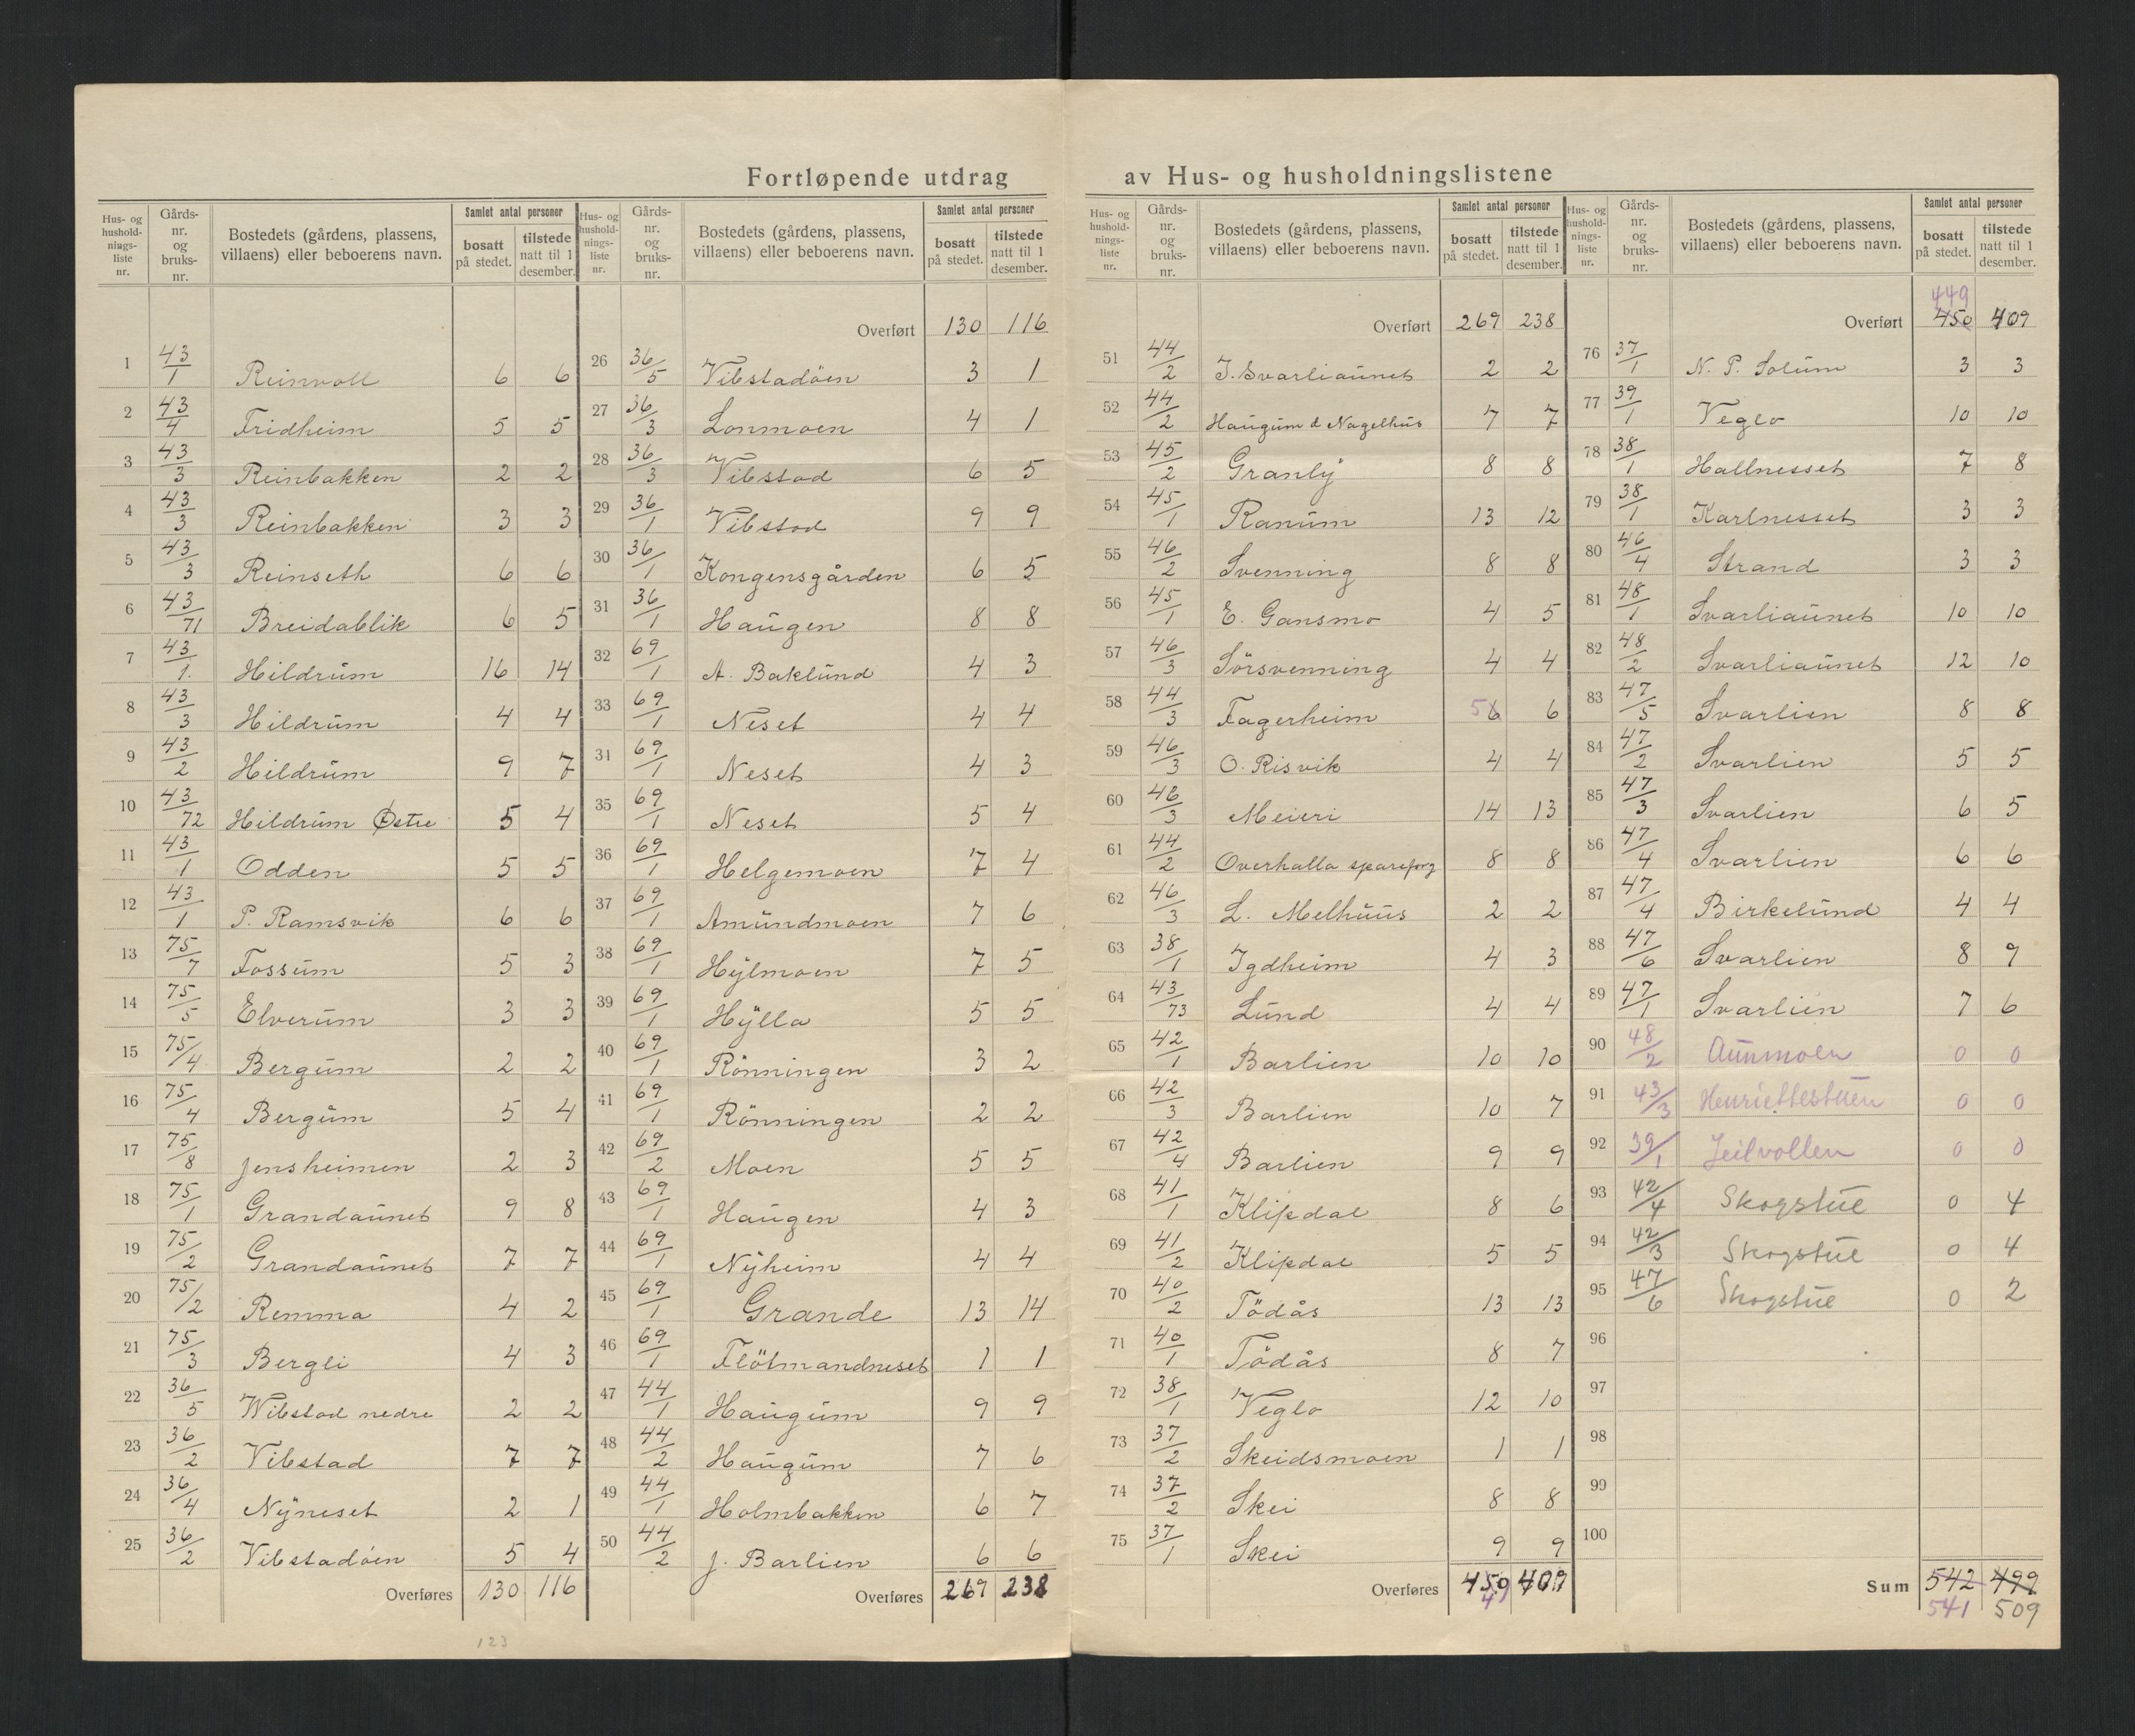 Fortløpende utdrag av Hus- og husholdningslistene
Hus- og hushold-nings-liste nr. Gårds-nr. og bruks-nr. Bostedets (gårdens, plassens, villaens) eller beboerens navn. Samlet antal personer bosatt på stedet. tilstede natt til 1 desember.
1 43/1 Reinvoll 6 6
2 43/4 Fridheim 5 5
3 43/3 Reinbakken 2 2
4 43/3 Reinbakken 3 3
5 43/3 Reinseth 6 6
6 43/71 Breidablik 6 5
7 43/1. Hildrum 16 14
8 43/3 Hildrum 4 4
9 43/2 Hildrum 9 7
10 43/72 Hildrum Østre 5 4
11 43/1 Odden 5 5
12 43/1 P. Ramsvik 6 6
13 75/7 Fossum 5 3
14 75/5 Elverum 3 3
15 75/4 Bergum 2 2
16 75/4 Bergum 5 4
17 75/8 Jensheimen 2 3
18 75/1 Grandaunet 9 8
19 75/2 Grandaunet 7 7
20 75/2 Remma 4 2
21 75/3 Bergli 4 3
22 36/5 Wibstad nedre 2 2
23 36/2 Vibstad 7 7
24 36/4 Nyneset 2 1
25 36/2 Vibstadöen 5 4
Overføres 130 116
123
Hus- og hushold-nings-liste nr. Gårds-nr. og bruks-nr. Bostedets (gårdens, plassens, villaens) eller beboerens navn. Samlet antal personer bosatt på stedet. tilstede natt til 1 desember.
Overført 130 116
26 36/5 Vibstadöen 3 1
27 36/3 Lonmoen 4 1
28 36/3 Vibstad 6 5
29 36/1 Vibstad 9 9
30 36/1 Kongensgården 6 5
31 36/1 Haugen 8 8
32 69/1 A. Baklund 4 3
33 69/1 Neset 4 4
31 69/1 Neset 4 3
35 69/1 Neset 5 4
36 69/1 Helgemoen 7 4
37 69/1 Amundmoen 7 6
38 69/1 Hylmoen 7 5
39 69/1 Hylla 5 5
40 69/1 Rönningen 3 2
41 69/1 Rönningen 2 2
42 69/2 Moen 5 5
43 69/1 Haugen 4 3
44 69/1 Nyheim 4 4
45 69/1 Grande 13 14
46 69/1 Flötmandneset 1 1
47 44/1 Haugum 9 9
48 44/2 Haugum 7 6
49 44/1 Holmbakken 6 7
50 44/2 J. Barlien 6 6
Overføres 269 238
Hus- og hushold-nings-liste nr. Gårds-nr. og bruks-nr. Bostedets (gårdens, plassens, villaens) eller beboerens navn. Samlet antal personer bosatt på stedet. tilstede natt til 1 desember.
Overført 269 238
51 44/2 J. Svarliaunet 2 2
52 44/2 Haugum d Nagelhus 7 7
53 45/2 Granly 8 8
54 45/1 Ranum 13 12
55 46/2 Svenning 8 8
56 45/1 E. Gansmo 4 5
57 46/3 Sörsvenning 4 4
58 44/3 Fagerheim 5 6 6
59 46/3 O. Risvik 4 4
60 46/3 Meieri 14 13
61 44/2 Overhalla spareforg 8 8
62 46/3 L. Melhuus 2 2
63 38/1 Igdheim 4 3
64 43/73 Lund 4 4
65 42/1 Barlien 10 10
66 42/3 Barlien 10 7
67 42/4 Barlien 9 9
68 41/1 Klipdal 8 6
69 41/2 Klipdal 5 5
70 40/2 Tödås 13 13
71 40/1 Tödås 8 7
72 38/1 Veglo 12 10
73 37/2 Skeidsmoen 1 1
74 37/2 Skei 8 8
75 37/1 Skei 9 9
Overføres 450 409
Hus- og hushold-nings-liste nr. Gårds-nr. og bruks-nr. Bostedets (gårdens, plassens, villaens) eller beboerens navn. Samlet antal personer bosatt på stedet. tilstede natt til 1 desember.
449
Overført 450 409
76 37/1 N. P. Solum 3 3
77 39/1 Veglo 10 10
78 38/1 Hallnesset 7 8
79 38/1 Karlnesset 3 3
80 46/4 Strand 3 3
81 48/1 Svarliaunet 10 10
82 48/2 Svarliaunet 12 10
83 47/5 Svarlien 8 8
84 47/2 Svarlien 5 5
85 47/3 Svarlien 6 5
86 47/4 Svarlien 6 6
87 47/4 Birkelund 4 4
88 47/6 Svarlien 8 9
89 47/1 Svarlien 7 6
90 48/2 Aunmoen 0 0
91 43/3 Henriettestuen 0 0
92 39/1 Jeilvollen 0 0
93 42/4 Skogstue 0 4
94 42/3 Skogstue 0 4
95 47/6 Skogstue 0 2
96
97
98
99
100
Sum 542 499
541 509